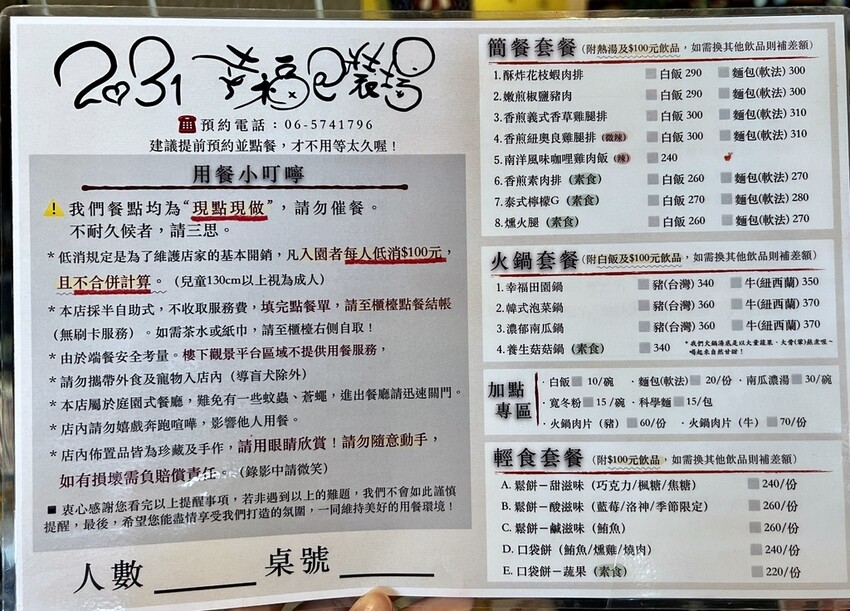 2031 幸福包裝場
預約電話：06-5741796
建議提前預約並點餐，才不用等太久喔！
用餐小叮嚀
我們餐點均為“現點現做”，請勿催餐。
不耐久候者，請三思。
*低消規定是為了維護店家的基本開銷，凡入園者每人低消$100元，
且不合併計算。(兒童130cm以上視為成人)
*本店採半自助式，不收取服務費，填完點餐單，請至櫃檯點餐結帳
(無刷卡服務)。如需茶水或紙巾，請至櫃檯右側自取！
*由於端餐安全考量。樓下觀景平台區域不提供用餐服務，
*請勿攜帶外食及寵物入店內（導盲犬除外)
*本店屬於庭園式餐廳，難免有一些蚊蟲、蒼蠅，進出餐廳請迅速關門。
*店內請勿嬉戲奔跑喧嘩，影響他人用餐。
*店內佈置品皆為珍藏及手作，請用眼睛欣賞！請勿隨意動手，
如有損壞需負賠償責任。(錄影中請微笑)
■ 衷心感謝您看完以上提醒事項，若非遇到以上的難題，我們不會如此謹慎
提醒，最後，希望您能盡情享受我們打造的氛圍，一同維持美好的用餐環境！
人數 桌號
簡餐套餐 (附熱湯及$100元飲品，如需換其他飲品則補差額)
1.酥炸花枝蝦肉排 白飯 290 麵包(軟法) 300
2.嫩煎椒鹽豬肉 白飯 290 麵包(軟法) 300
3.香煎義式香草雞腿排 白飯 300 麵包(軟法) 310
4.香煎紐奧良雞腿排 (微辣) 白飯 300 麵包(軟法) 310
5.南洋風味咖哩雞肉飯 (辣) 240
6.香煎素肉排 (素食) 白飯 260 麵包(軟法) 270
7.泰式檸檬G (素食) 白飯 270 麵包(軟法) 280
8.燻火腿 (素食) 白飯 260 麵包(軟法) 270
火鍋套餐 (附白飯及$100元飲品，如需換其他飲品則補差額)
1.幸福田園鍋 豬(台灣) 340 牛(紐西蘭) 350
2.韓式泡菜鍋 豬(台灣) 360 牛(紐西蘭) 370
3.濃郁南瓜鍋 豬(台灣) 360 牛(紐西蘭) 370
4.養生菇菇鍋 (素食) 340 *我們火鍋湯底是以大量蔬果、大骨(葷)熬煮喔~
喝起來自然甘甜！
加點專區
·白飯 10/碗 ·麵包(軟法) 20/份 ·南瓜濃湯 30/碗
·寬冬粉 15/碗 ·科學麵 15/包
·火鍋肉片（豬） 60/份 ·火鍋肉片（牛） 70/份
輕食套餐 (附$100元飲品，如需換其他飲品則補差額)
A. 鬆餅－甜滋味（巧克力/楓糖/焦糖） 240/份
B. 鬆餅－酸滋味（藍莓/洛神/季節限定） 260/份
C. 鬆餅－鹹滋味（鮪魚） 260/份
D. 口袋餅（鮪魚/燻雞/燒肉） 240/份
E. 口袋餅－蔬果（素食） 220/份